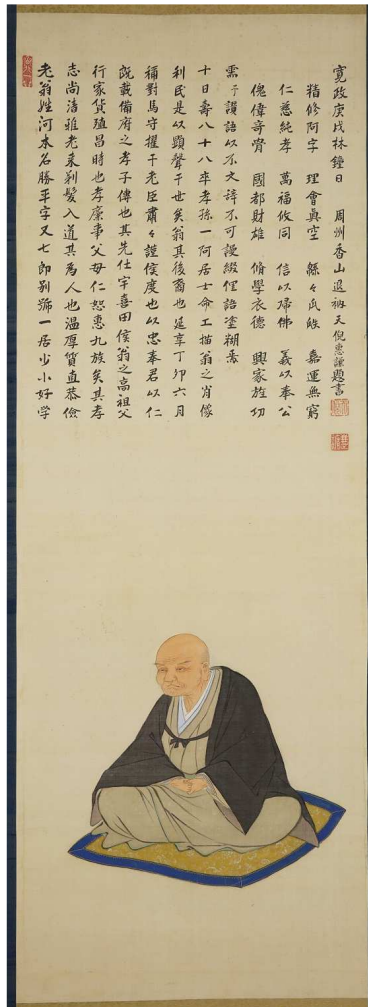 老翁姓河本名勝平字又七郎別號一居少小好学
志尚清雅老来剃髮入道其為人也温厚質直恭儉
行家貨殖昌時也孝廉事父母仁恕惠九族矣其孝
既載備府之孝子傳也其先仕宇喜田侯翁之高祖父
稱對馬守擢于老臣肅々謹侯度也以忠奉君以仁
利民是以顕聲于世矣翁其後裔也延享丁卯六月
十日壽八十八卒孝孫一阿居士命工描翁之肖像
需予讃語以不文辞不可謾綴俚語塗糊焉
傀偉奇骨 國都財雄 脩學衣德 興家旌功
仁慈純孝 萬福攸同 信以歸佛 義以奉公
精修阿字 理會真空 緜々瓜瓞 嘉運無窮
寛政庚戌林鐘日 周州香山退衲天倪惠謙題書